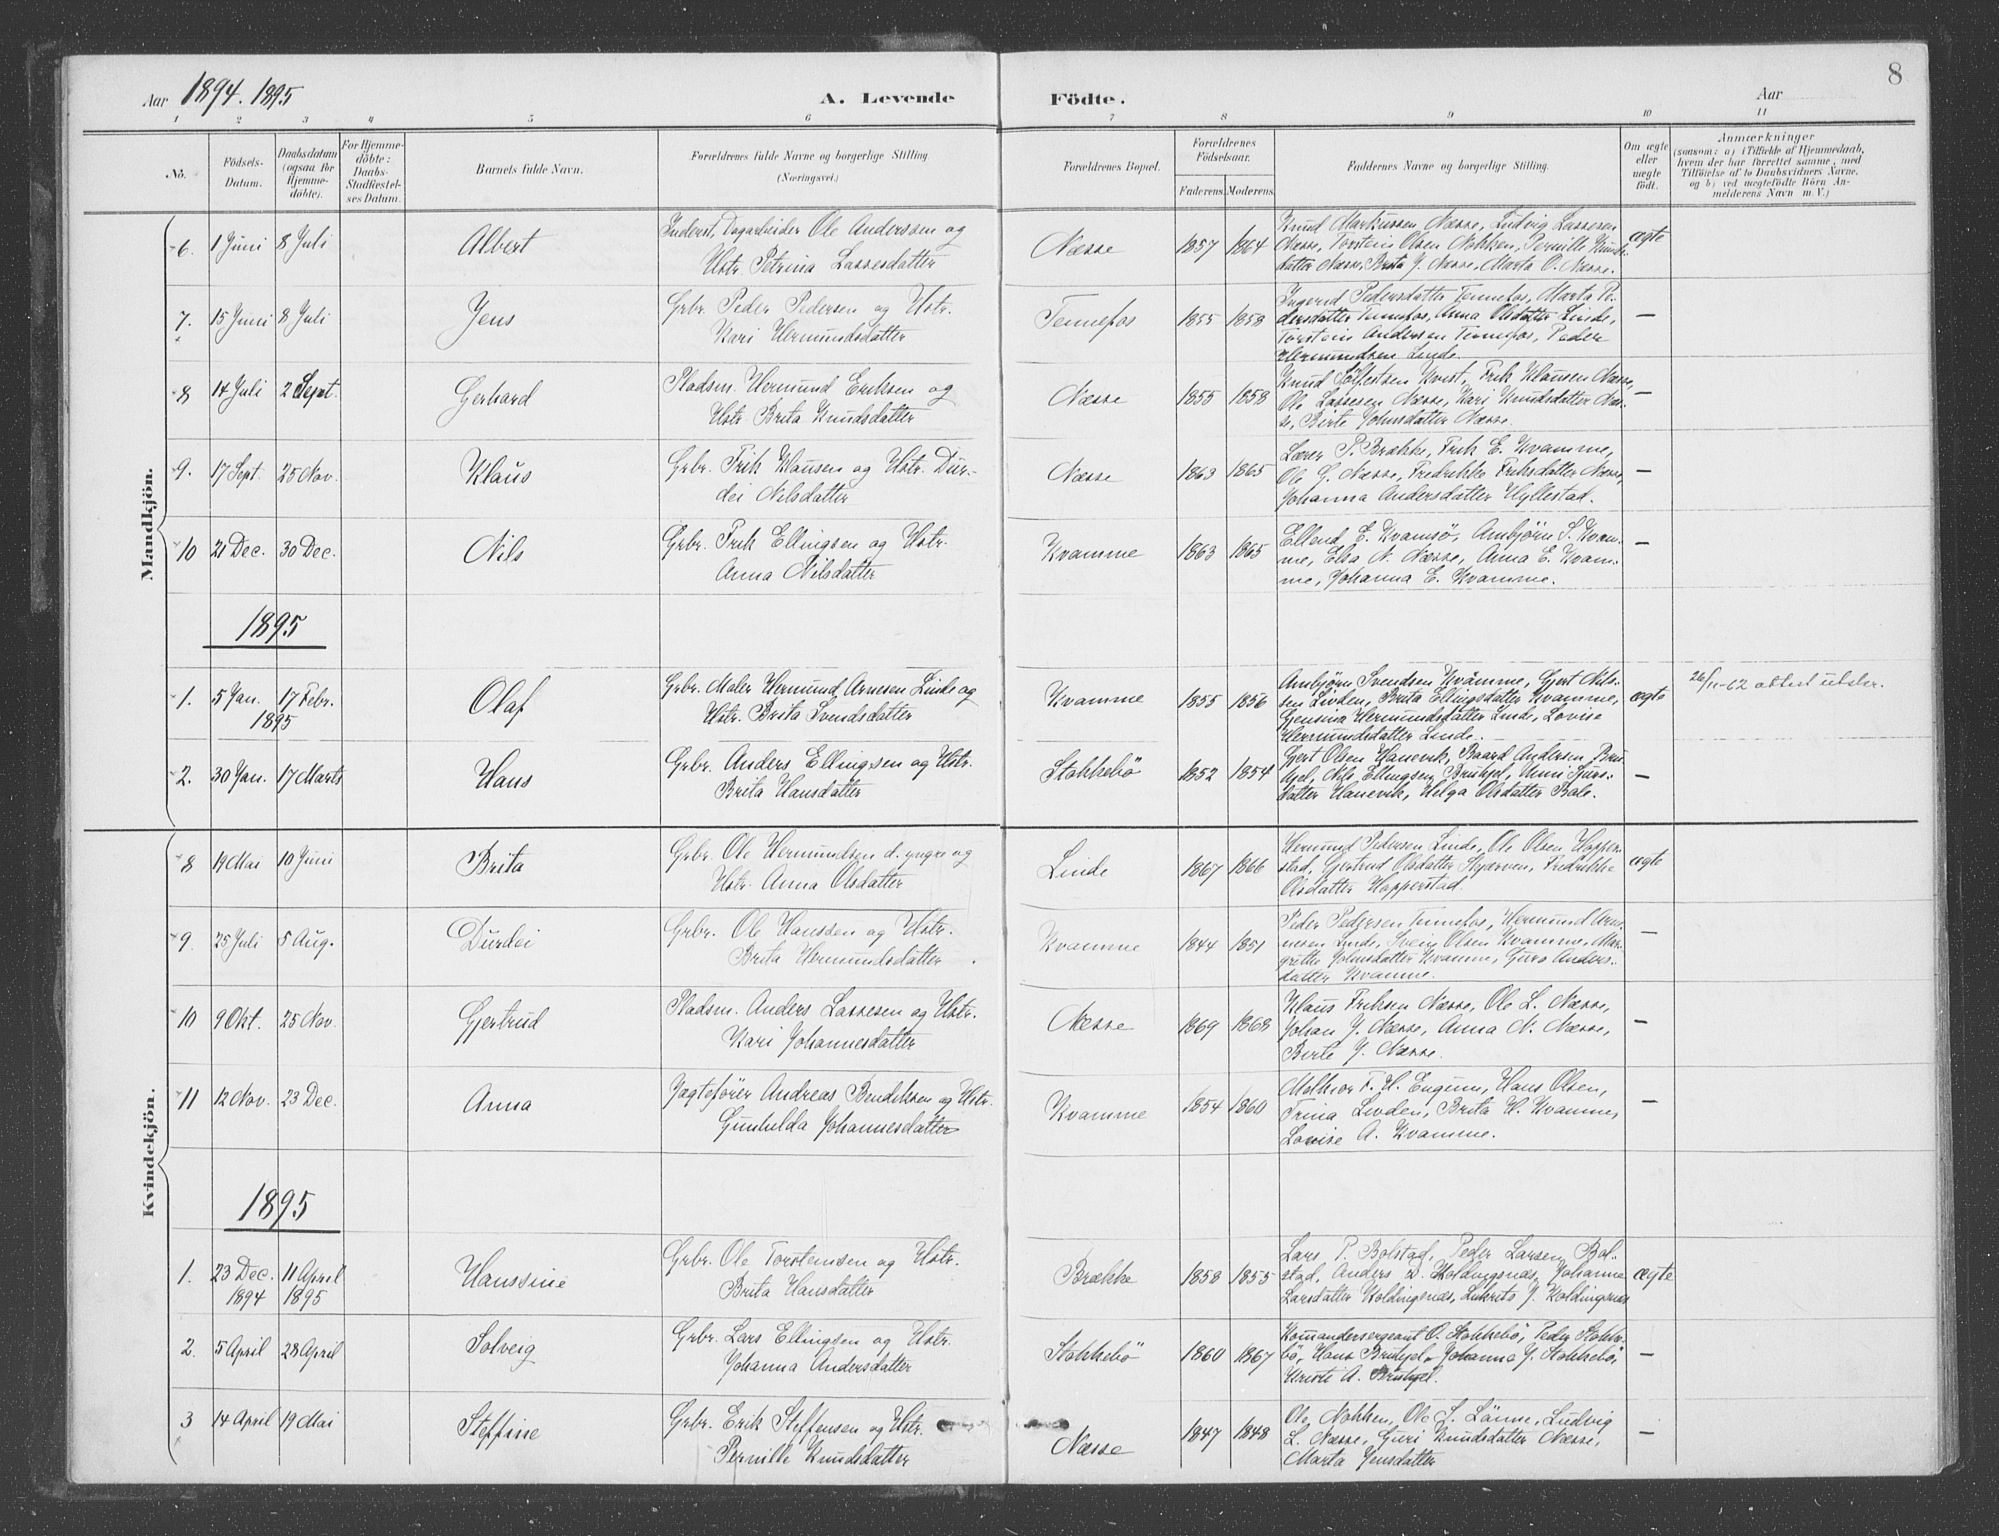 8
Aar 1894. 1895 A. Levende Födte. Aar
1 2 3 4 5 6 7 8 9 10 11
No. Födsels-Datum. Daabsdatum (ogsaa for Hjemme-döbte). For Hjemme-döbte: Daabs-Stadfæstel-ses Datum. Barnets fulde Navn. Forældrenes fulde Navne og borgerlige Stilling (Næringsvei.) Forældrenes Bopæl. Forældrenes Födselsaar. Faderens. Moderens. Faddernes Navne og borgerlige Stilling. Om ægte eller uægte födt. Anmærkninger (saasom: a) i Tilfælde af Hjemmedaab, hvem der har forrettet samme, med Tilföielse af to Daabsvidners Navne, og b) ved uægtefödte Börn An-melderens Navn m. V.)
Mandkjön.
6. 1 Juni 8 Juli Albert Inderst, Dagarbeider Ole Anderssen og
Hstr. Petrina Lassesdatter Næsse 1857 1864 Knud Markussen Næsse, Ludvig Lassesen
Næsse, Torstein Olsen Nokken, Pernille Knuds-
datter Næsse, Brita J. Næsse, Marta O. Næsse. ægte
7. 15 Juni 8 Juli Jens Grbr. Peder Pedersen og Hstr.
Kari Hermundsdatter Tennefos 1855 1858 Ingerid Pedersdatter Tennefos, Marta Pe-
dersdatter Tennefos, Anna Olsdatter Linde,
Torstein Andersen Tennefos, Peder
Hermundsen Linde. —
8 14 Juli 2 Sept. Gerhard Pladsm. Hermund Eriksen og
Hstr. Brita Knudsdatter Næsse 1855 1858 Knud Sölfestsen Kvist, Frik Klausen Næsse,
Ole Lassesen Næsse, Kari Knudsdatter Næs-
se, Birte Johnsdatter Næsse. —
9. 17 Sept. 25 Nov. Klaus Grbr. Frik Klausen og Hstr. Dur-
dei Nilsdatter Næsse 1863 1865 Lærer P. Brække, Frik E. Kvamme,
Ole G. Næsse, Fredrikke Friksdatter Næsse,
Johanna Andersdatter Hyllestad. —
10 21 Dec. 30 Dec. Nils Grbr. Frik Ellingsen og Hstr.
Anna Nilsdatter Kvamme 1863 1865 Ellend E. Kvamsö, Ambjörn S. Kvam-
me, Elsa N. Næsse, Anna E. Kvam-
me, Johanna E. Kvamme. —
1895
1. 5 Jan. 17 Febr. 1895 Olaf Grbr. Maler Hermund Arnesen Linde og
Hstr. Brita Svendsdatter Kvamme 1855 1856 Ambjörn Svendsen Kvamme, Gjert Nils-
sen Livden, Brita Ellingsdatter Kvamme,
Gjensina Hermundsdatter Linde, Lovise
Hermundsdatter Linde. ægte 26/11-62 attest utskr.
2. 30 Jan. 17 Marts Hans Grbr. Anders Ellingsen og Hstr.
Brita Hansdatter Stokkebö 1852 1854 Gjert Olsen Hanevik, Baard Andersen Bru-
hjel, Nils Ellingsen Bruhjel, Unni Sjurs-
datter Hanevik, Helga Olsdatter Bale. —
Kvindekjön.
8 19 Mai 10 Juni Brita Grbr. Ole Hermundsen d. yngre og
Hstr. Anna Olsdatter Linde 1867 1866 Hermund Pedersen Linde, Ole Olsen Hopper-
stad, Gjertrud Olsdatter Skjærven, Fredrikke
Olsdatter Hopperstad ægte
9. 25 Juli 5 Aug. Durdei Grbr. Ole Hanssen og Hstr.
Brita Hermundsdatter Kvamme 1844 1851 Peder Pedersen Tennefos, Hermund Arne-
nesen Linde, Svein Olsen Kvamme, Mar-
grethe Johnsdatter Kvamme, Guro Anders-
datter Kvamme. —
10 9 Okt. 25 Nov. Gjertrud Pladsm. Anders Lassesen og Hstr.
Kari Johannesdatter Næsse 1869 1868 Klaus Friksen Næsse, Ole L. Næsse,
Johan J. Næsse, Anna N. Næsse,
Birte J. Næsse. —
11 12 Nov. 23 Dec. Anna Jagtefører Andreas Bendiksen og Hstr.
Gunhilda Johannesdatter Kvamme 1854 1860 Melkior F. H. Engum, Hans Olsen,
Trina Livden, Brita H. Kvamme,
Lovise A. Kvamme. —
1895
1. 23 Dec. 1894 11 April 1895 Hanssine Grbr. Ole Torsteinsen og Hstr.
Brita Hansdatter Brække 1858 1855 Lars P. Bolstad, Peder Larsen Bol-
stad, Anders L. Holdingsnæs, Johanne
Larsdatter Koldingsnæs, Lukrits J. Koldingsnæs ægte
2. 5 April 28 April Solveig Grbr. Lars Ellingsen og Hstr.
Johanna Andersdatter Stokkebö 1860 1867 Komandersergeant O. Stokkebö, Peder Stokke-
bö, Hans Bruhjel, Johanna J. Stokkebö,
Kristi A. Bruhjel. —
3 14 April 19 Mai Steffine Grbr. Erik Steffensen og Hstr.
Pernille Knudsdatter Næsse 1847 1848 Ole Nokken, Ole J. Lönne, Ludvig
L. Næsse, Guri Knudsdatter Næsse,
Marta Jensdatter —